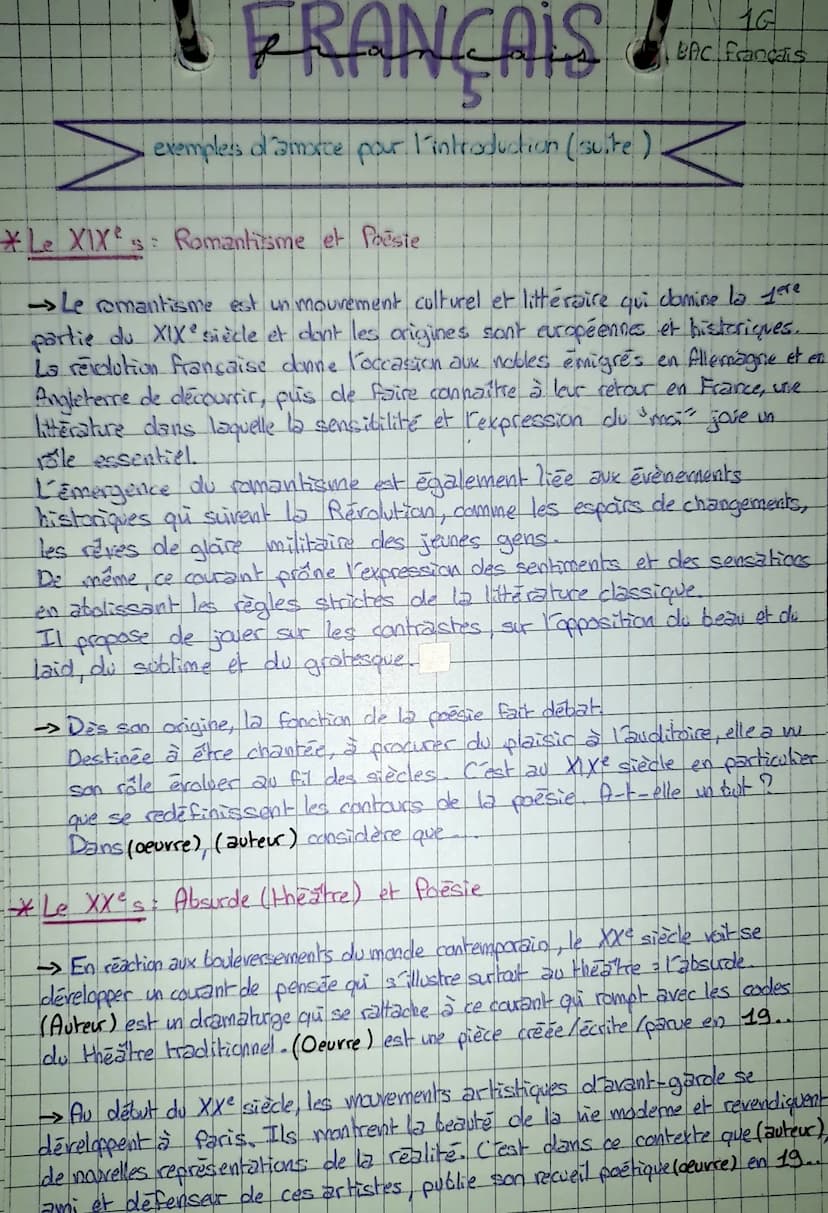 FRANÇAIS
français
5
1G
BAC Français
exemples d'amorce pour l'introduction (suite)
* Le XIXe s : Romantisme et Poésie
→ Le romantisme est un mouvement culturel et littéraire qui domine la 1ère
partie du XIXe siècle et dont les origines sont européennes et historiques.
La révolution française donne l'occasion aux nobles émigrés en Allemagne et en
Angleterre de découvrir, puis de faire connaître à leur retour en France, une
littérature dans laquelle la sensibilité et l'expression du "moi" joue un
rôle essentiel.
L'émergence du romantisme est également liée aux évènements
historiques qui suivent la Révolution, comme les espoirs de changements,
les rêves de gloire militaire des jeunes gens.
De même, ce courant prône l'expression des sentiments et des sensations
en abolissant les règles strictes de la littérature classique.
Il propose de jouer sur les contrastes, sur l'opposition du beau et du
laid, du sublime et du grotesque.
→ Dès son origine, la fonction de la poésie fait débat.
Destinée à être chantée, à procurer du plaisir à l'auditoire, elle a vu
son rôle évoluer au fil des siècles. C'est au XIXe siècle en particulier
que se redéfinissent les contours de la poésie. A-t-elle un but ?
Dans (oeuvre), (auteur) considère que ...
* Le XXe s : Absurde (théâtre) et Poésie
→ En réaction aux bouleversements du monde contemporain, le XXe siècle voit se
développer un courant de pensée qui s'illustre surtout au théâtre : l'absurde.
(Auteur) est un dramaturge qui se rattache à ce courant qui rompt avec les codes
du théâtre traditionnel. (Oeuvre) est une pièce créée/écrite/parue en 19..
→ Au début du XXe siècle, les mouvements artistiques d'avant-garde se
développent à Paris. Ils montrent la beauté de la vie moderne et revendiquent
de nouvelles représentations de la réalité. C'est dans ce contexte que (auteur),
ami et défenseur de ces artistes, publie son recueil poétique (oeuvre) en 19..